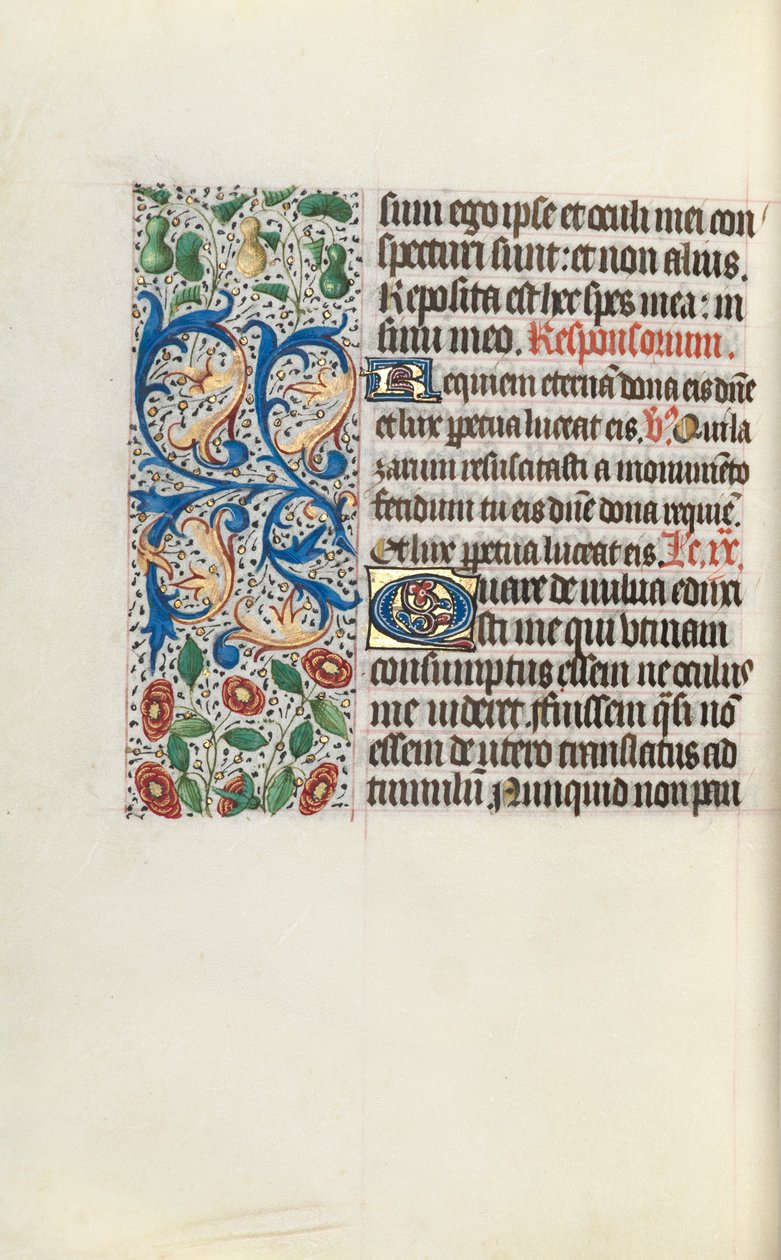 sum ego ipse et oculi mei con
specturi sunt: et non alius.
Reposita est hec spes mea: in
sinu meo. Responsorium.
Requiem eternā dona eis dñe
et lux ꝑpetua luceat eis. V̉. Qui la
zarum resuscitasti a monumēto
fetidum tu eis dñe dona requiē.
Et lux ꝑpetua luceat eis. Lc. ix.
Quare de vulva eduxi
sti me qui utinam
consumptus essem ne oculus
me videret. Fuissem q̄si nō
essem de utero translatus ad
tumulū. Nunquid non pau